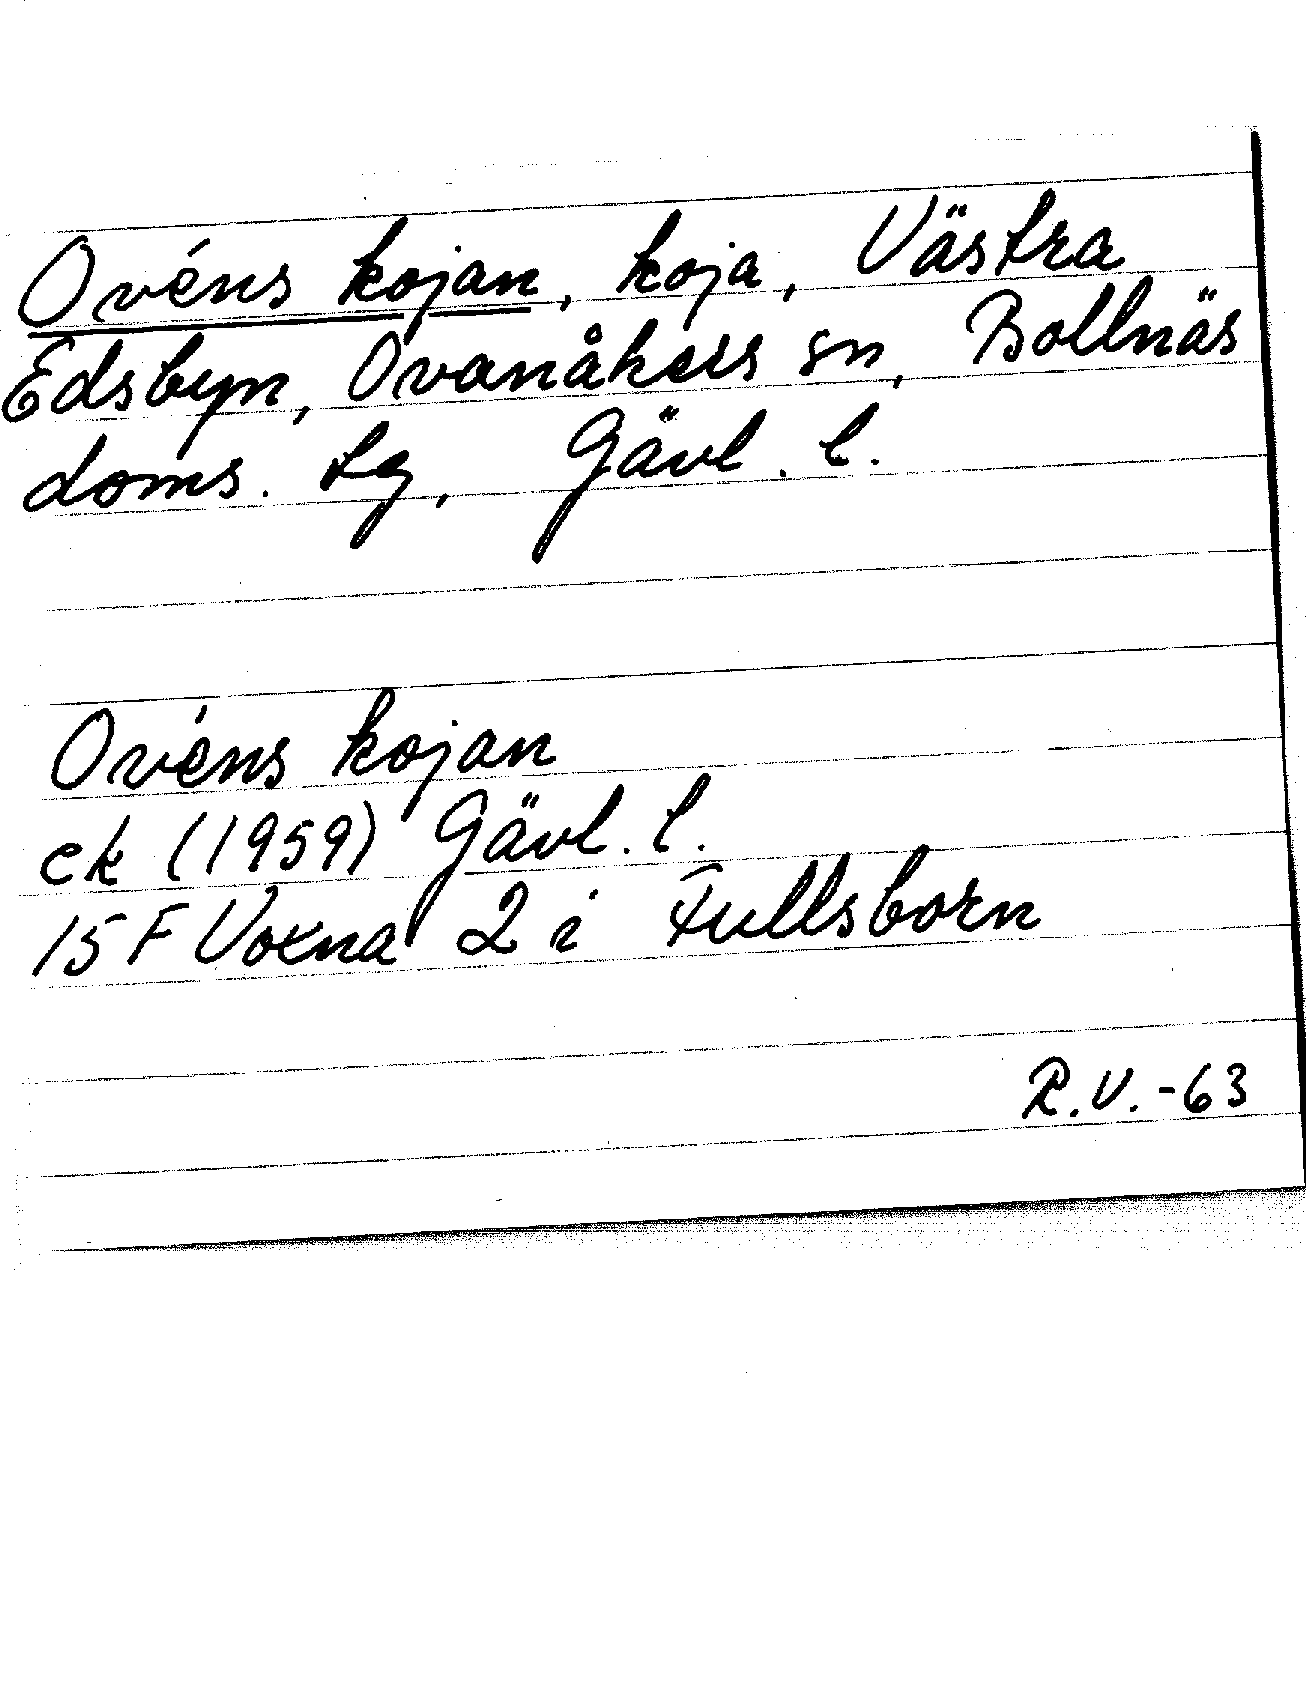 Ovéns kojan, koja, Västra
Edsbyn, Ovanåkers sn, Bollnäs
doms. lg, Gävl. l.
Ovéns kojan
ek (1959) Gävl. l.
15 F Voxna 2 i Fullsborn
R.V. -63